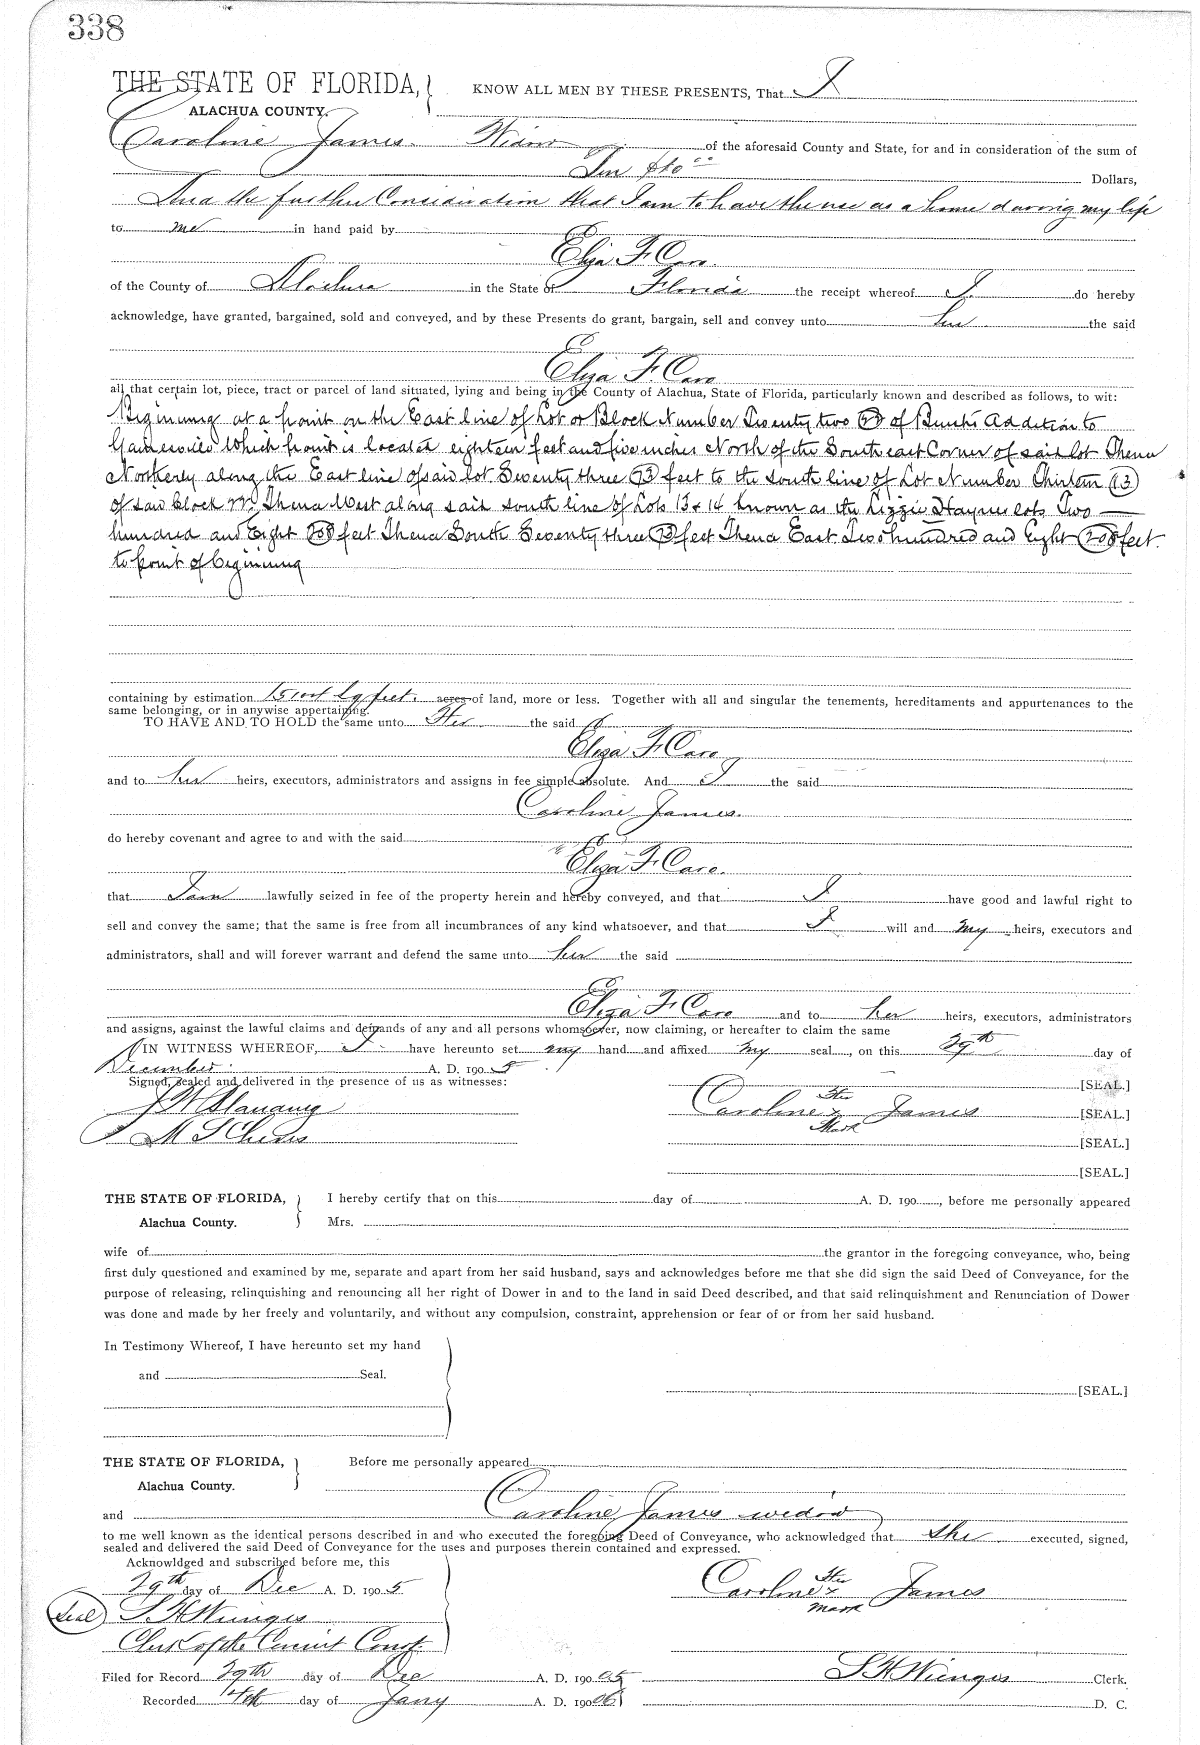 338
THE STATE OF FLORIDA, KNOW ALL MEN BY THESE PRESENTS, That I
ALACHUA COUNTY.
Caroline James. Widow of the aforesaid County and State, for and in consideration of the sum of
Ten $10 00 Dollars,
And the further Consideration that I am to have the use as a home during my life
to me in hand paid by
Eliza F. Caro.
of the County of Alachua in the State of Florida the receipt whereof I do hereby
acknowledge, have granted, bargained, sold and conveyed, and by these Presents do grant, bargain, sell and convey unto her the said
Eliza F. Caro
all that certain lot, piece, tract or parcel of land situated, lying and being in the County of Alachua, State of Florida, particularly known and described as follows, to wit:
Beginning at a point on the East line of Lot or Block Number Twenty two 22 of Addition to
Gainesville Which point is located eighteen feet and five inches North of the South east Corner of said lot Thence
Northerly along the East line of said lot Seventy three 73 feet to the south line of Lot Number Thirteen (13)
of said block Thence West along said south line of Lots 13 & 14 known as the Lizzie Haynes lots Two
hundred and Eight 208 feet Thence South Seventy three 73 feet Thence East Two hundred and Eight 208 feet.
to point of beginning
containing by estimation sq feet. acres of land, more or less. Together with all and singular the tenements, hereditaments and appurtenances to the
same belonging, or in anywise appertaining.
TO HAVE AND TO HOLD the same unto Her the said
Eliza F. Caro
and to her heirs, executors, administrators and assigns in fee simple absolute. And I the said
Caroline James.
do hereby covenant and agree to and with the said
Eliza F. Caro.
that I am lawfully seized in fee of the property herein and hereby conveyed, and that I have good and lawful right to
sell and convey the same; that the same is free from all incumbrances of any kind whatsoever, and that I will and my heirs, executors and
administrators, shall and will forever warrant and defend the same unto her the said
Eliza F. Caro and to her heirs, executors, administrators
and assigns, against the lawful claims and demands of any and all persons whomsoever, now claiming, or hereafter to claim the same
IN WITNESS WHEREOF, I have hereunto set my hand and affixed my seal, on this 29th day of
December. A. D. 190 5.
Signed, sealed and delivered in the presence of us as witnesses: [SEAL.]
J W Caroline Her x Mark James [SEAL.]
M S [SEAL.]
[SEAL.]
THE STATE OF FLORIDA, I hereby certify that on this day of A. D. 190 , before me personally appeared
Alachua County. Mrs.
wife of the grantor in the foregoing conveyance, who, being
first duly questioned and examined by me, separate and apart from her said husband, says and acknowledges before me that she did sign the said Deed of Conveyance, for the
purpose of releasing, relinquishing and renouncing all her right of Dower in and to the land in said Deed described, and that said relinquishment and Renunciation of Dower
was done and made by her freely and voluntarily, and without any compulsion, constraint, apprehension or fear of or from her said husband.
In Testimony Whereof, I have hereunto set my hand
and Seal.
[SEAL.]
THE STATE OF FLORIDA, Before me personally appeared
Alachua County.
and Caroline James widow
to me well known as the identical persons described in and who executed the foregoing Deed of Conveyance, who acknowledged that She executed, signed,
sealed and delivered the said Deed of Conveyance for the uses and purposes therein contained and expressed.
Acknowldged and subscribed before me, this
29th day of Dec A. D. 190 5 Caroline Her x mark James
Seal S. H. Wienges
Clerk of the Circuit Court
Filed for Record 29th day of Dec A. D. 190 05 S H Wienges Clerk.
Recorded 4th day of Jany A. D. 190 06 D. C.